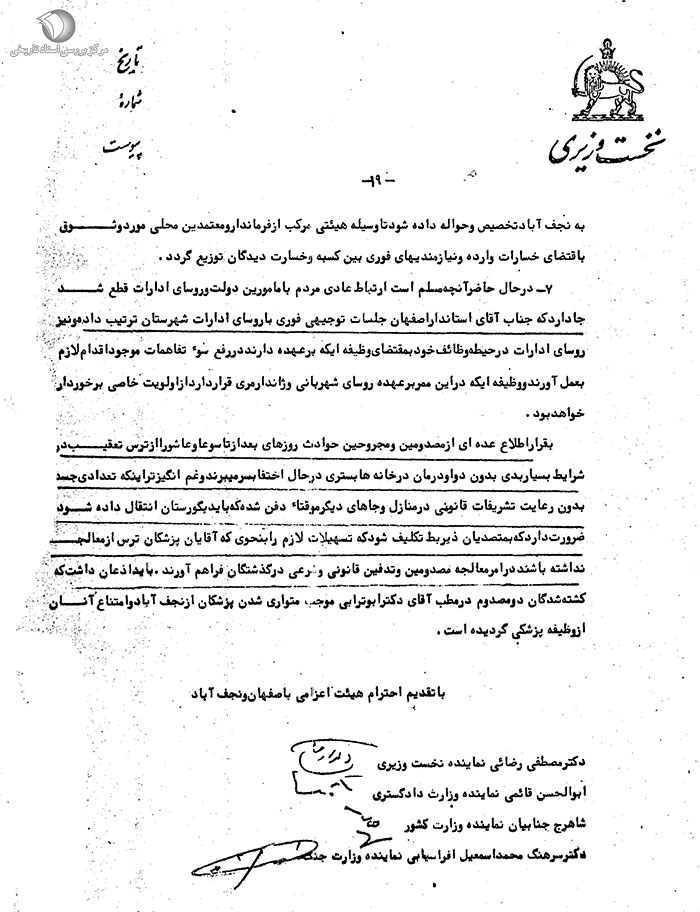 مرکز بررسی اسناد تاریخی
تاریخ
شمارهٔ
پیوست
نخست وزیری
-۱۹-
به نجف آباد تخصیص و حواله داده شود تا وسیله هیئتی مرکب از فرماندار و معتمدین محلی مورد وثـــــــوق
با قتضای خسارات وارده و نیازمندیهای فوری بین کسبه و خسارت دیدگان توزیع گردد .
۷ـ در حال حاضر آنچه مسلم است ارتباط عادی مردم با مامورین دولت و روسای ادارات قطع شـــــد
جا دارد که جناب آقای استاندار اصفهان جلسات توجیهی فوری با روسای ادارات شهرستان ترتیب داده و نیز
روسای ادارات در حیطه وظائف خود بمقتضای وظیفه ایکه بر عهده دارند در رفع سوء تفاهمات موجود اقدام لازم
بعمل آورند و وظیفه ایکه در این ممر بر عهده روسای شهربانی و ژاندارمری قرار دارد از اولویت خاصی برخوردار
خواهد بود .
بقرار اطلاع عده ای از مصدومین و مجروحین حوادث روزهای بعد از تاسوعا و عاشورا از ترس تعقیـــب در
شرایط بسیار بدی بدون دوا و درمان در خانه ها بستری در حال اختفا بسر میبرند و غم انگیز تر اینکه تعدادی جسد
بدون رعایت تشریفات قانونی در منازل و جاهای دیگر موقتاً دفن شده که باید بگورستان انتقال داده شـــود
ضرورت دارد که بمتصدیان ذیربط تکلیف شود که تسهیلات لازم را بنحوی که آقایان پزشکان ترس از معالجـــه
نداشته باشند در امر معالجه مصدومین و تدفین قانونی و شرعی در گذشتگان فراهم آورند . باید اذعان داشت که
کشته شدگان دو مصدوم در مطب آقای دکتر ابوترابی موجب متواری شدن پزشکان از نجف آباد و امتناع آنـــان
از وظیفه پزشکی گردیده است .
با تقدیم احترام هیئت اعزامی باصفهان و نجف آباد
دکتر مصطفی رضائی نماینده نخست وزیری
ابوالحسن قائمی نماینده وزارت دادگستری
شاهرج جنابیان نماینده وزارت کشور
دکتر سرهنگ محمد اسمعیل افراسیابی نماینده وزارت جنگ